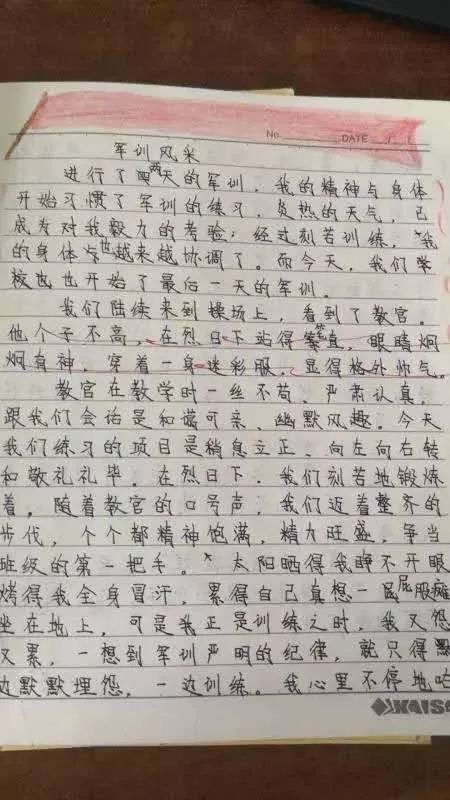 No. DATE / /
军训风采
进行了两天的军训，我的精神与身体
开始习惯了军训的练习，炎热的天气，已
成为对我毅力的考验；经过刻苦训练，我
的身体也越来越协调了。而今天，我们学
校也也开始了最后一天的军训。
我们陆续来到操场上，看到了教官。
他个子不高，在烈日下站得笔直，眼睛炯
炯有神，穿着一身迷彩服，显得格外帅气。
教官在教学时一丝不苟，严肃认真，
跟我们会话是和谒可亲、幽默风趣。今天
我们练习的项目是稍息立正、向左向右转
和敬礼礼毕。在烈日下，我们刻苦地锻炼
着。随着教官的口号声，我们迈着整齐的
步伐，个个都精神饱满，精力旺盛，争当
班级的第一把手。太阳晒得我睁不开眼
烤得我全身冒汗，累得自己真想一屁股瘫
坐在地上，可是我正是训练之时，我又怨
又累，一想到军训严明的纪律，就只得默
边默默埋怨，一边训练。我心里不停地咕
KAIS